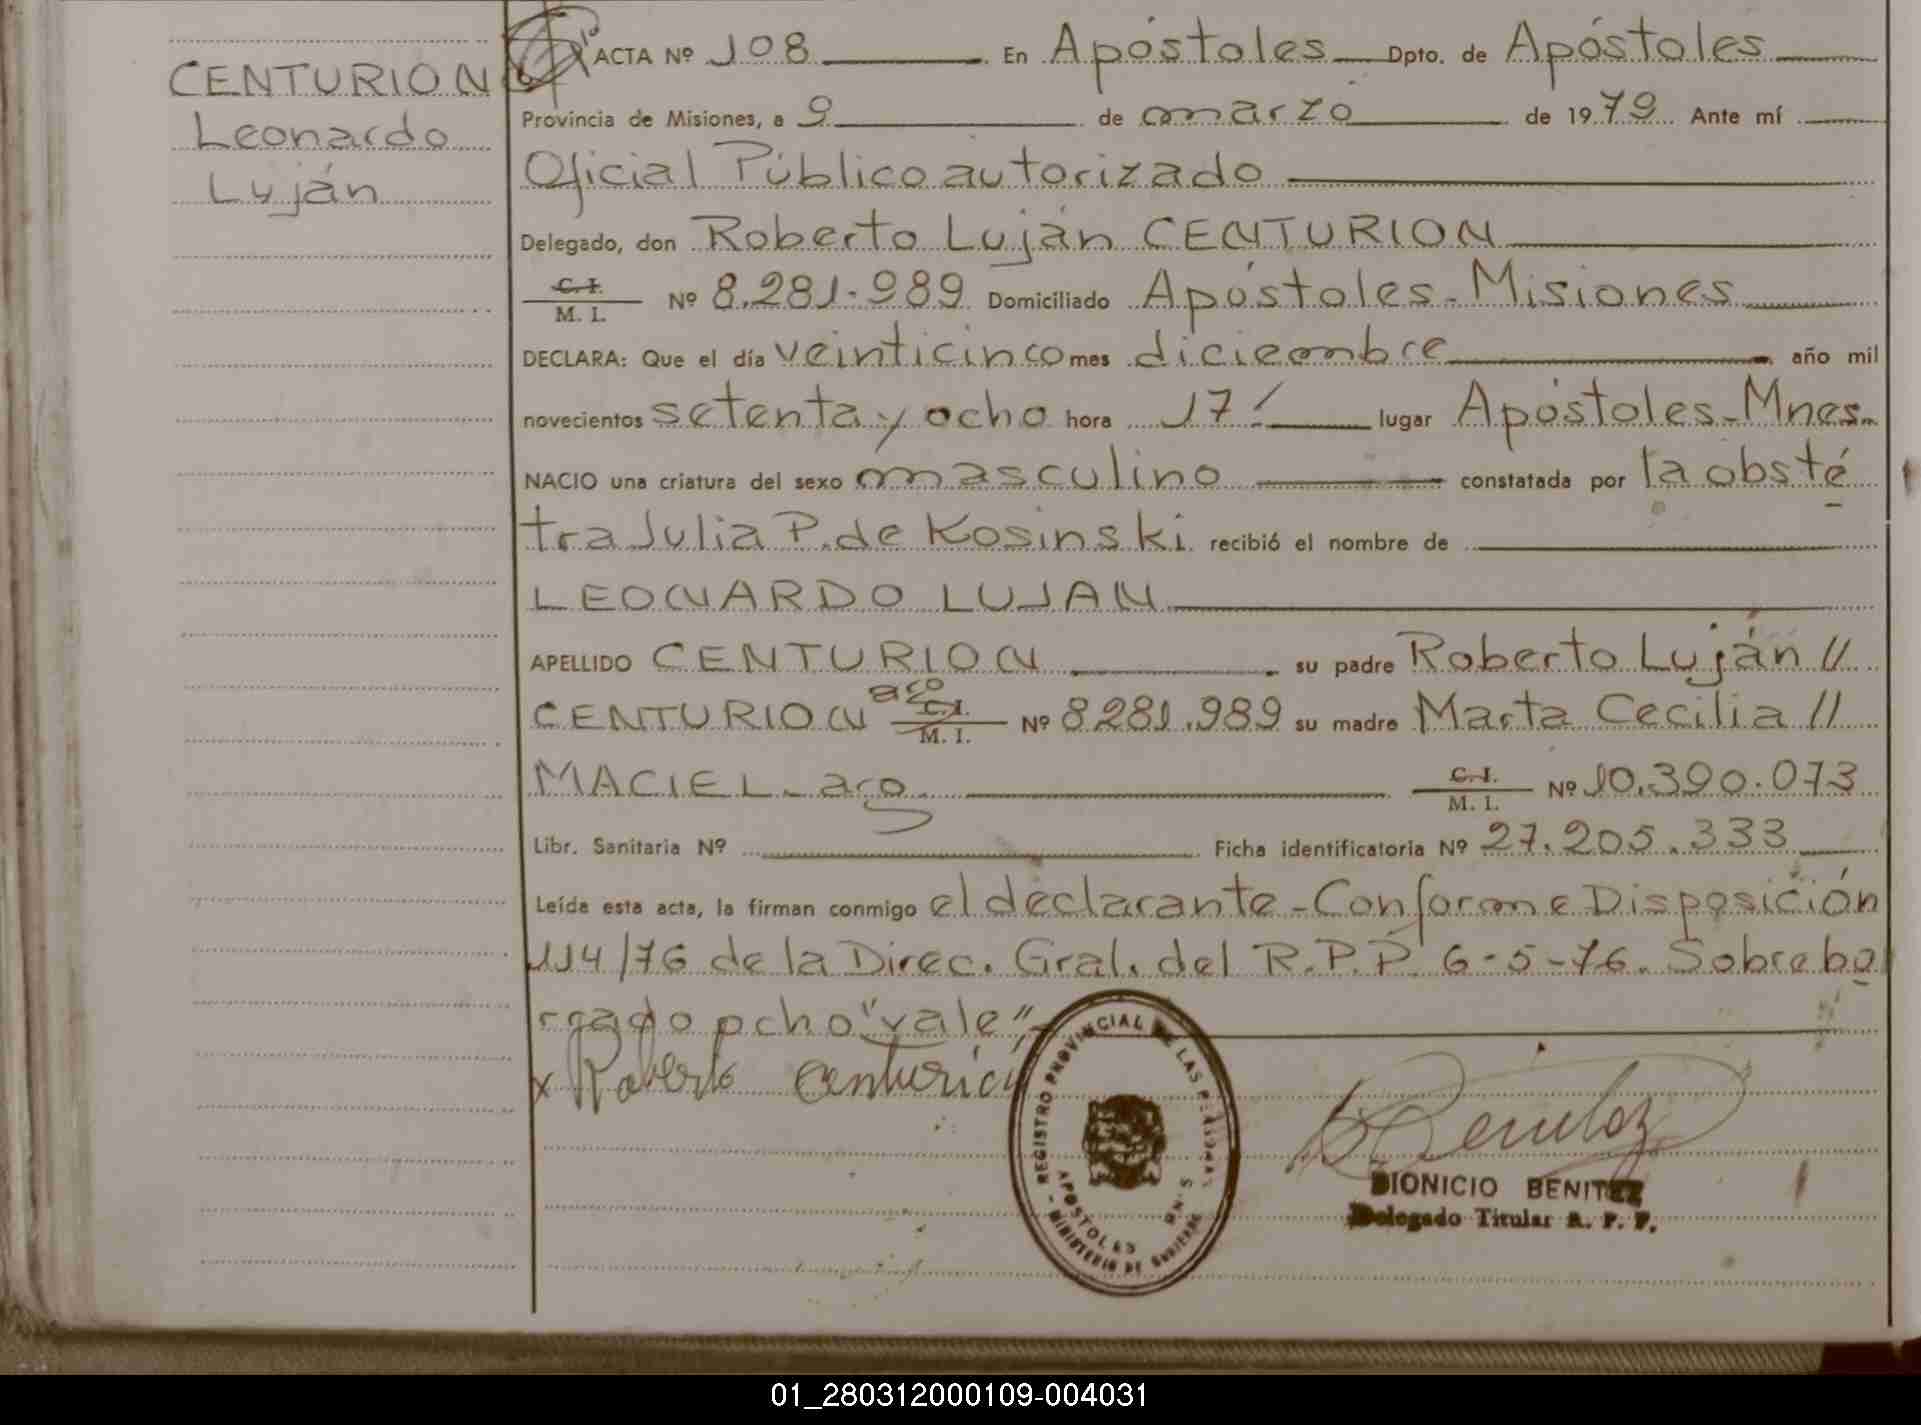 CENTURION
Leonardo
Luján
ACTA Nº 108 En Apóstoles Dpto. de Apóstoles
Provincia de Misiones, a 9 de marzo de 1979 Ante mí
Oficial Público autorizado
Delegado, don Roberto Luján CENTURION
C. I. / M. I. Nº 8.281.989 Domiciliado Apóstoles - Misiones
DECLARA: Que el día veinticinco mes diciembre año mil
novecientos setenta y ocho hora 17 lugar Apóstoles - Mnes.
NACIO una criatura del sexo masculino constatada por la obsté
tra Julia P. de Kosinski recibió el nombre de
LEONARDO LUJAN
APELLIDO CENTURION su padre Roberto Luján //
CENTURION arg C. I. / M. I. Nº 8.281.989 su madre Marta Cecilia //
MACIEL - arg. C. I. / M. I. Nº 10.390.073
Libr. Sanitaria Nº Ficha identificatoria Nº 27.205.333
Leída esta acta, la firman conmigo el declarante - Conforme Disposición
114/76 de la Direc. Gral. del R.P.P. 6-5-76. Sobre bo
rrado ocho "vale"
x Roberto Centurion
REGISTRO PROVINCIAL DE LAS PERSONAS
APOSTOLES MNES
MINISTERIO DE GOBIERNO
Benitez
DIONICIO BENITEZ
Delegado Titular R. P. P.
01_280312000109-004031